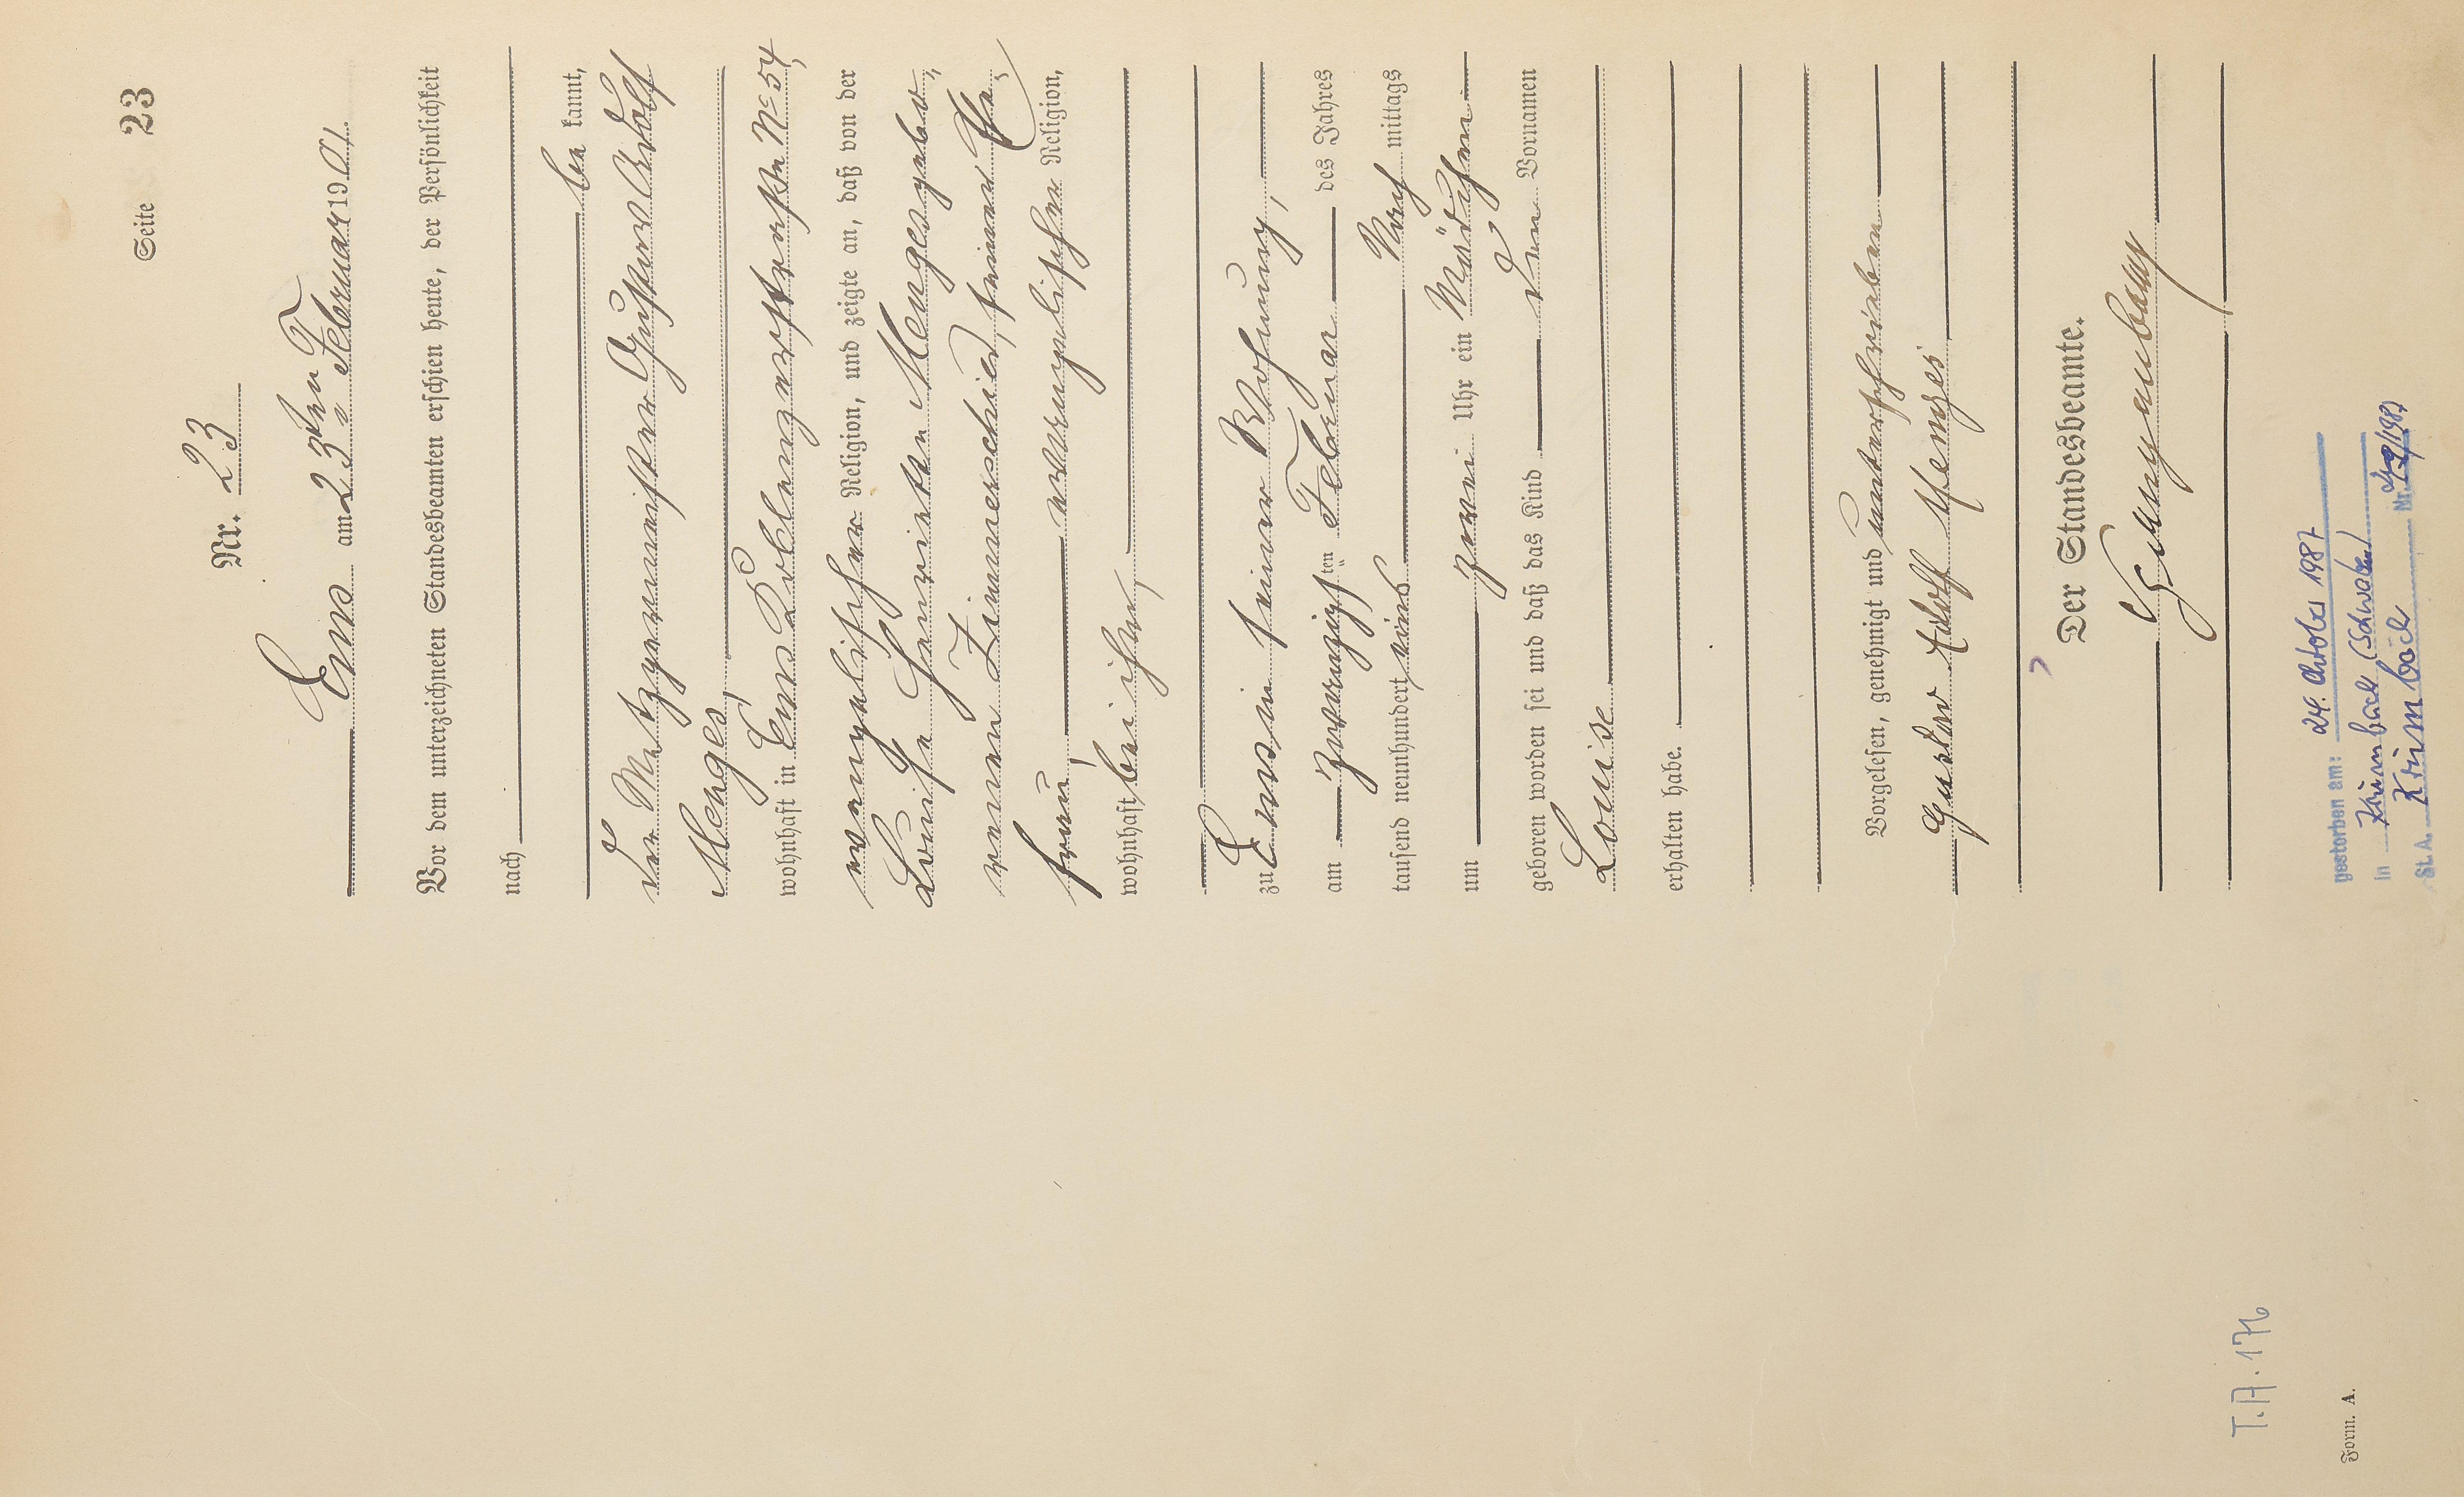 Seite 23
Nr. 23
Ems am 23ten Februar 1901.
Vor dem unterzeichneten Standesbeamten erschien heute, der Persönlichkeit
nach
be kannt,
der Metzgermeister Gustav Adolf
Menges,
wohnhaft in Ems Coblenzerstraße No 54,
evangelischer Religion, und zeigte an, daß von der
Luise Henriette Menges gebo-
renen Zimmerschied, seiner Ehe-
frau, evangelischer Religion,
wohnhaft bei ihm,
zu Ems in seiner Wohnung,
am zwanzigsten Februar des Jahres
tausend neunhundert eins Nach mittags
um zwei Uhr ein Mädchen
geboren worden sei und daß das Kind den Vornamen
Louise
erhalten habe.
Vorgelesen, genehmigt und unterschrieben
Gustav Adolf Menges
Der Standesbeamte.
gestorben am: 24. Oktober 1987
in Krumbach (Schwaben)
St. A. Krumbach Nr. /1987
T.A. 176
Form. A.